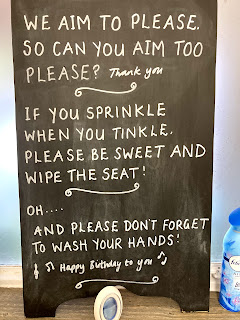 WE AIM TO PLEASE.
SO CAN YOU AIM TOO
PLEASE? Thank you
IF YOU SPRINKLE
WHEN YOU TINKLE.
PLEASE BE SWEET AND
WIPE THE SEAT!
OH....
AND PLEASE DON'T FORGET
TO WASH YOUR HANDS!
Happy Birthday to you